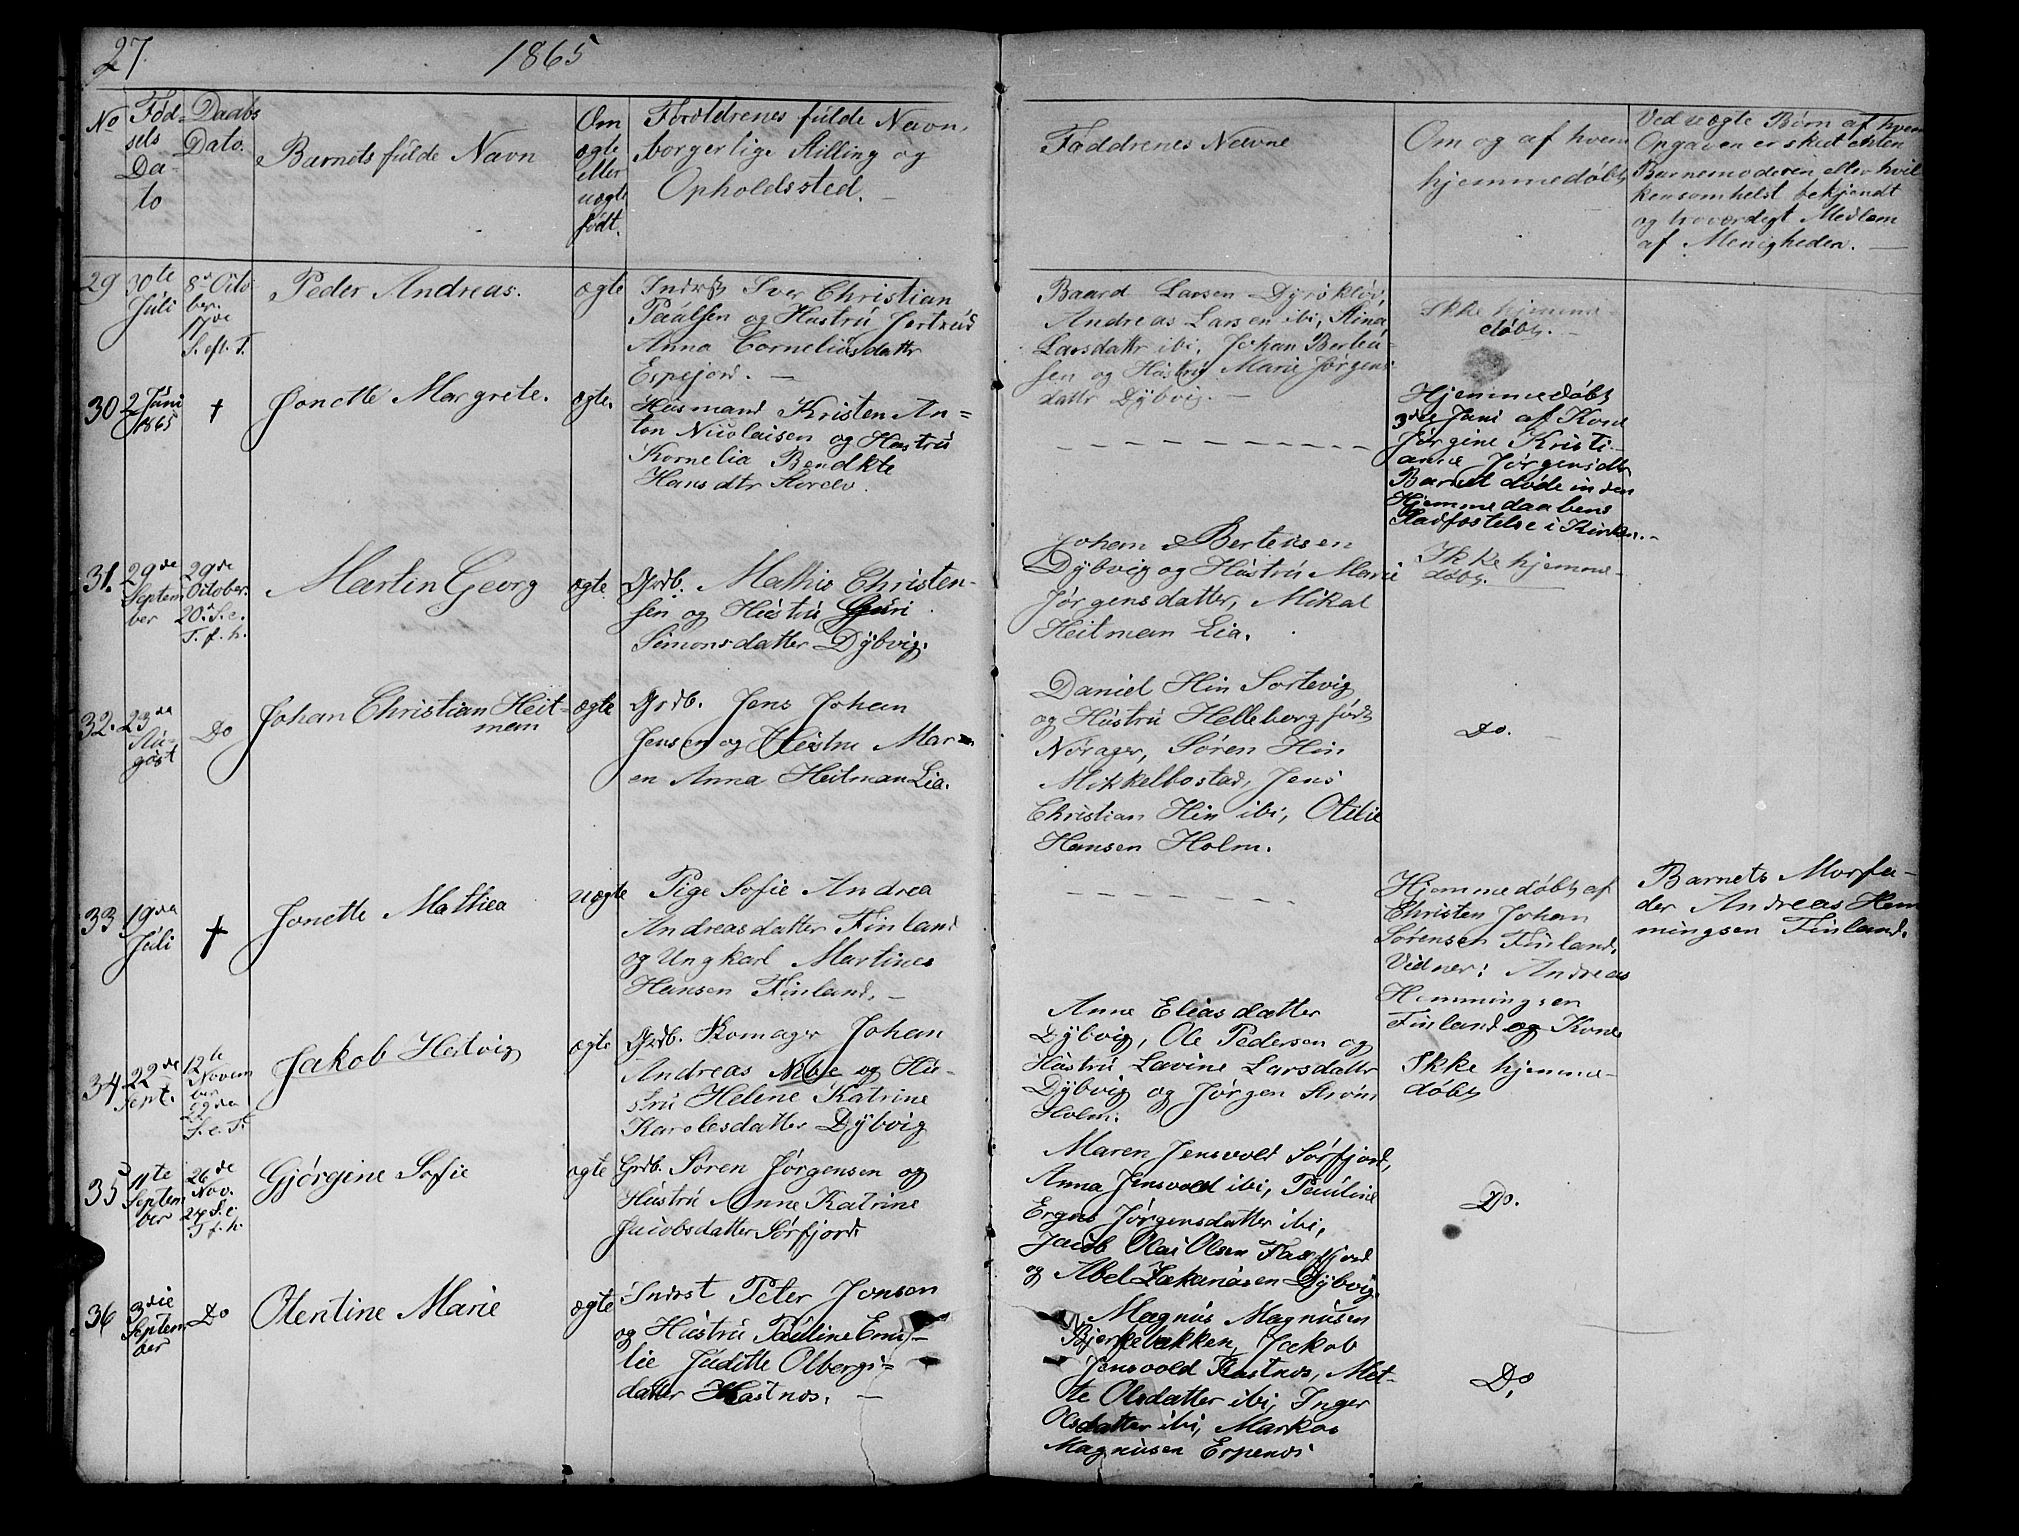 27.
1865
No
Fød-
sels
Da-
to
Daabs
Dato.
Barnets fulde Navn
Om
ægte
eller
uægte
født.
Forældrenes fulde Navn,
borgerlige Stilling og
Opholdssted. —
Faddrenes Navne
Om og af hvem
hjemmedøbt
Ved uægte Børn af hvem
Opgaven er skeet enten
Barnemoderen eller hvil
kensomhelst bekjendt
og troværdigt Medlem
af Menigheden. —
29
30te
Juli
8de Octo
ber.
17de
S. eft. T.
Peder Andreas.
ægte
Indrst Sver Christian
Paulsen og Hustru Jertrud
Anna Corneliusdattr
Espejord. —
Baard Larsen Dyrökløv,
Andreas Larsen ibi, Stina
Larsdattr ibi, Johan Berteu-
sen og Hustru Marie Jørgens
dattr Dÿbvig. —
Ikke hjemme-
døbt. —
30
2 Juni
1865
†
Jonette Margrete.
ægte.
Husmand Kristen An=
ton Nicolaisen og Hustru
Kornelia Bendkte
Hansdtr Storelv.
Hjemmedøbt
3die Juni af Kone
Jørgine Kristi-
anne Jørgensdtr
Barnet døde inden
Hjemmedaabens
Stadfæstelse i Kirken. —
31.
29de
Septem
ber
29de
October.
20. S. e.
T. f. h.
Martin Georg
ægte
Grdb. Mathis Christen-
sen og Hustru Guri
Simonsdatter Dÿbvig.
Johan Berteusen
Dÿbvig og Hustru Marie
Jörgensdatter, Mikal
Heitman Lia.
Ikke hjemme-
døbt.
32.
23de
Au-
gust
Do
Johan Christian Heit=
man
ægte
Grdb. Jens Johan
Jensen og Hustru Mar-
en Anna Heitman Lia.
Daniel Hin Sortevig
og Hustru Helleborg født
Nörager, Sören Hin
Mikkelbostad, Jens
Christian Hin ibi, Otilie
Hansen Holm.
Do. —
33
19de
Juli
†
Jonette Mathea
uægte
Pige Sofie Andrea
Andreasdatter Finland
og Ungkarl Martines
Hansen Finland. —
Hjemmedøbt af
Christen Johan
Sörensen Finland,
Vidner: Andreas
Hemmingsen
Finland og Kone
Barnets Morfa-
der Andreas Hem
mingsen Finland.
34
22de
Sept.
12te
Novem
ber
22de
S. e. T.
Jakob Hertvig
ægte
Grdb. Skomager Johan
Andreas Nibe og Hu-
stru Helene Katrine
Karelesdatter Dÿbvig
Anne Eliasdatter
Dÿbvig, Ole Pedersen og
Hustru Lavine Larsdatter
Dÿbvig og Jörgen Ström
Holm.
Ikke hjemme-
døbt
35
11te
Septem
ber
26de
Nov.
24 S. e.
T. f. h.
Gjörgine Sofie
ægte
Grdb. Sören Jørgensen og
Hustru Anne Katrine
Jacobsdatter Sørfjord
Maren Jensvold Sørfjord,
Anna Jensvold ibi, Pauline
Jørgensdatter ibi,
Jacob Olai Olsen
og Abel Zakariasen Dÿbvig.
Do.
36
3die
Septem
ber
Do
Olentine Marie
ægte
Indrst Peter Jonsen
og Hustru Pauline Emi-
lie Juditte Olbergi=
datter Kastnæs. —
Magnus Magnusen
Bjerkebækken, Jakob
Jensvold Kastnæs, Met-
te Olsdatter ibi, Inger
Olsdatter ibi, Markus
Magnusen Espenes
Do